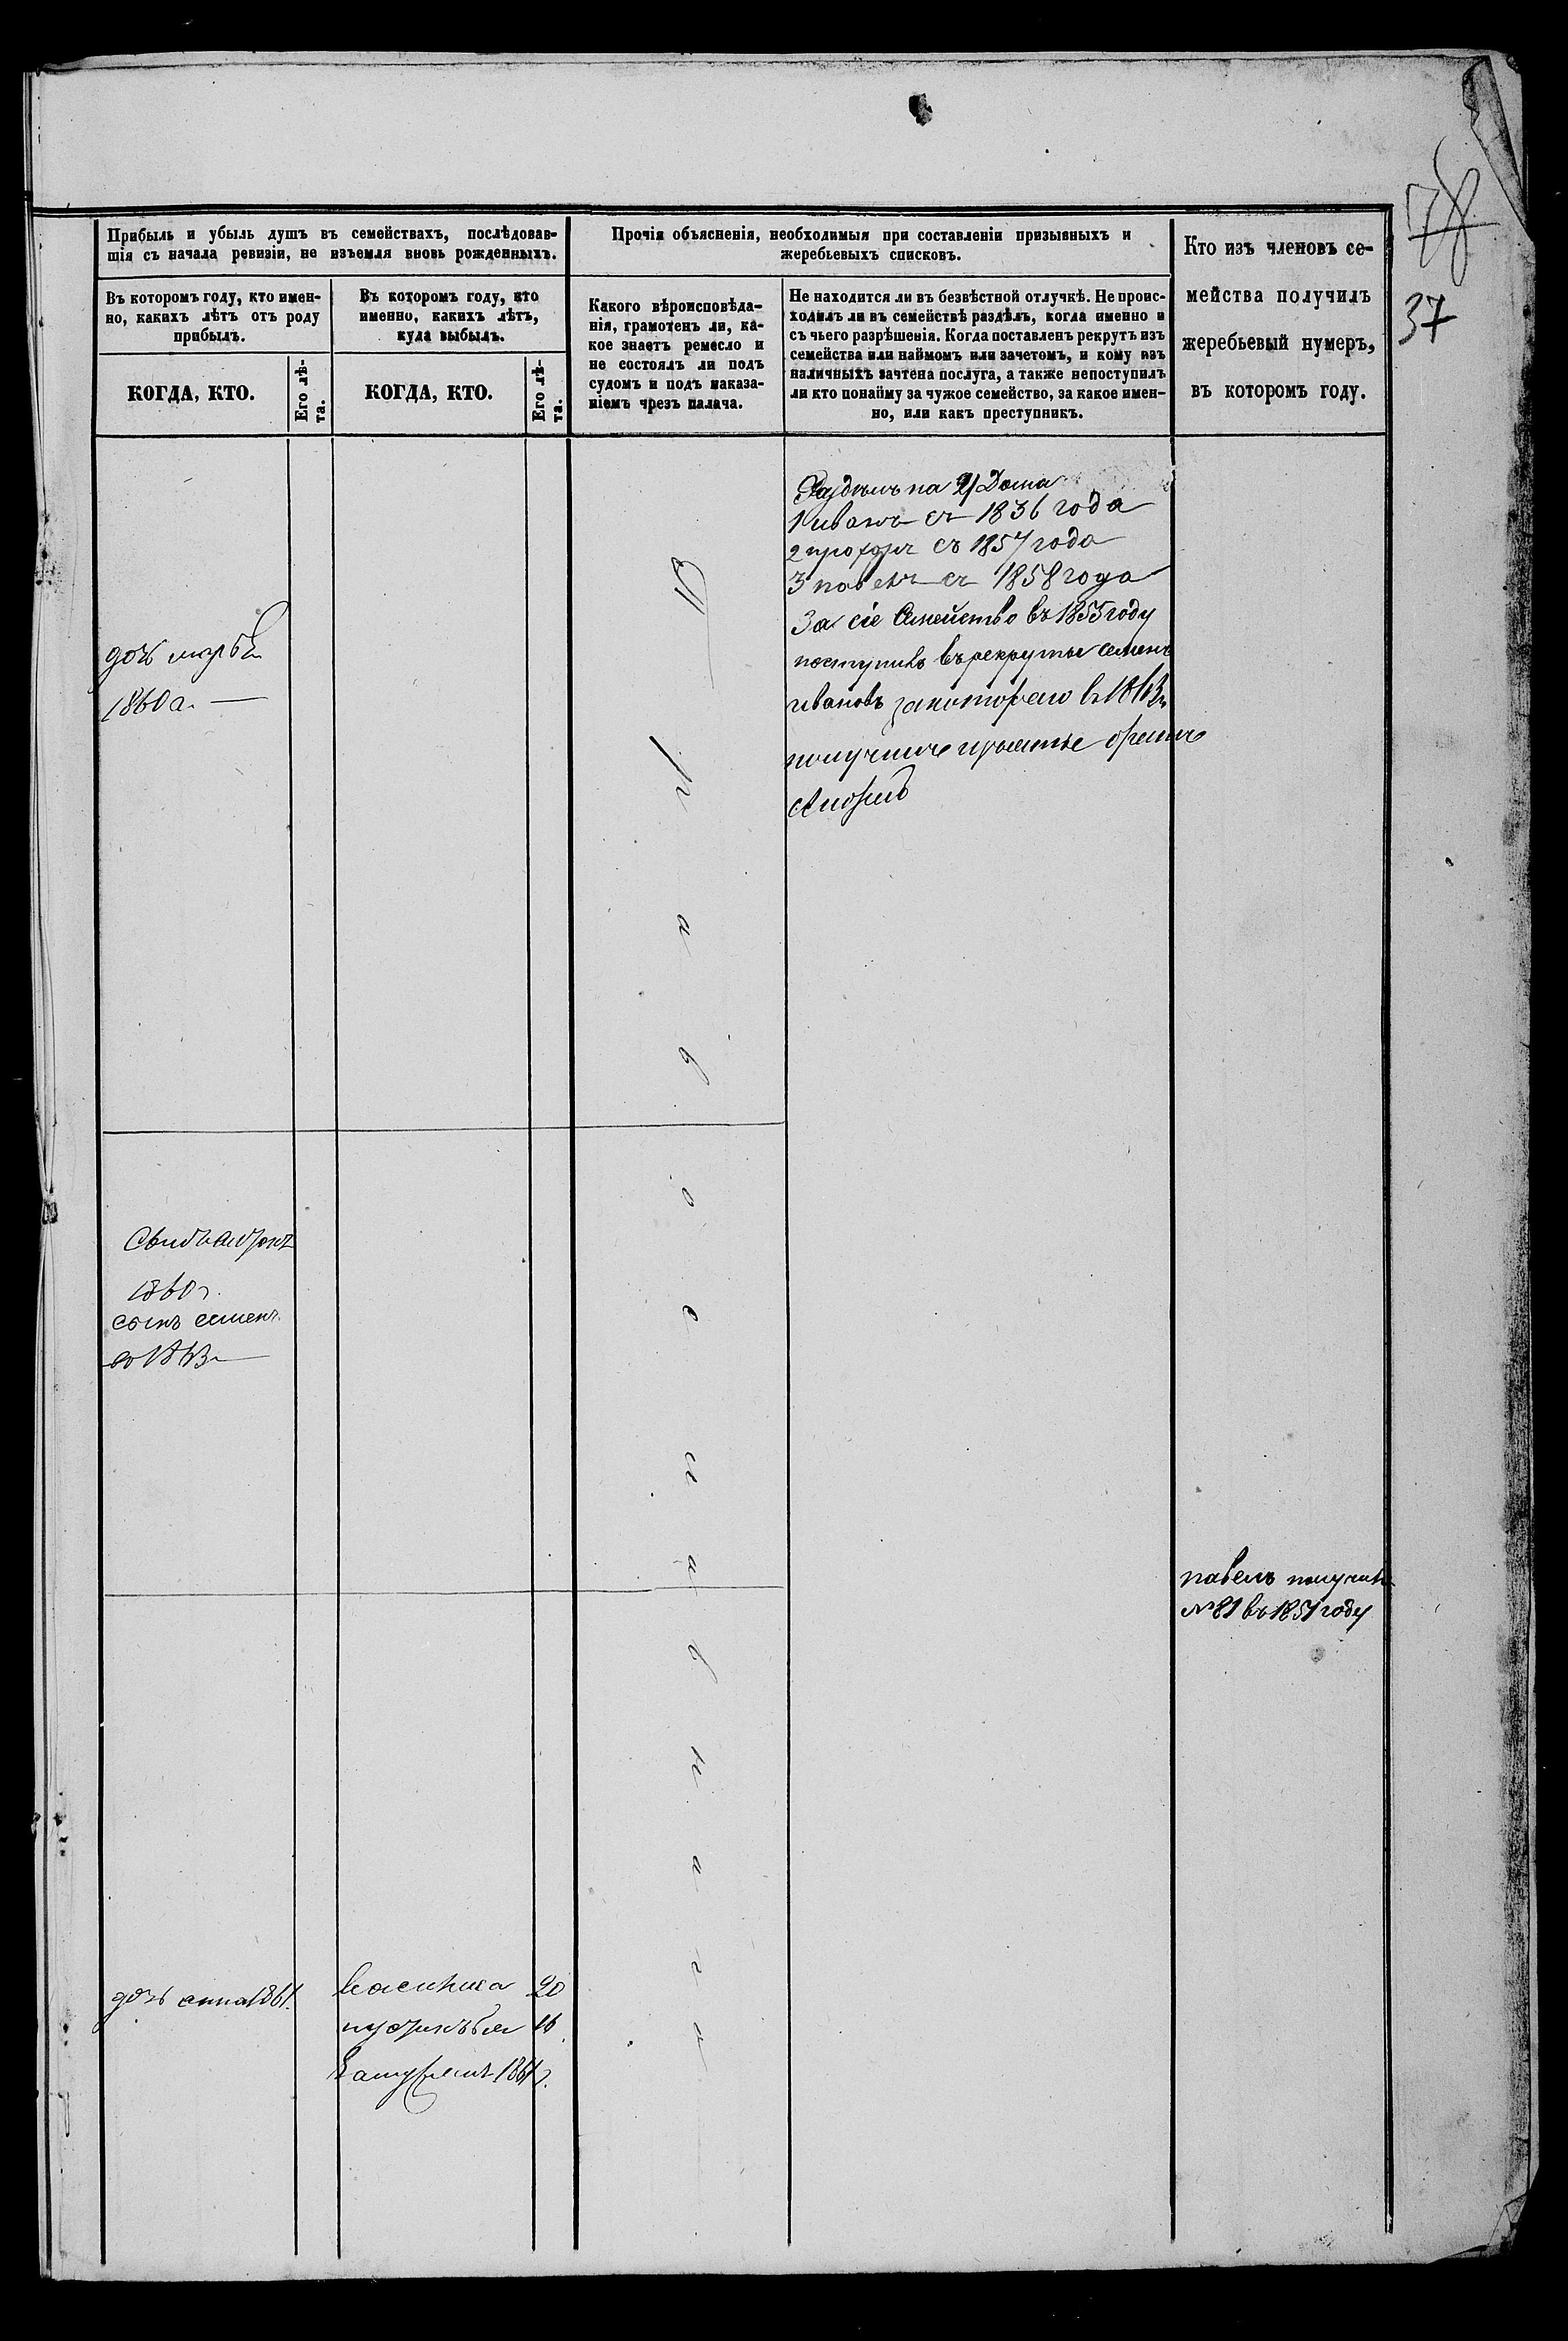 78
37
Прибыль и убыль душъ въ семействахъ, послѣдовав-
шія съ начала ревизіи, не изъемля вновь рожденныхъ.
Въ которомъ году, кто имен-
но, какихъ лѣтъ отъ роду
прибылъ.
КОГДА, КТО.
Его лѣ-
та.
Въ которомъ году, кто
именно, какихъ лѣтъ,
куда выбылъ.
КОГДА, КТО.
Его лѣ-
та.
Прочія объясненія, необходимыя при составленіи призывныхъ и
жеребьевыхъ списковъ.
Какого вѣроисповѣда-
нія, грамотенъ ли, ка-
кое знаетъ ремесло и
не состоялъ ли подъ
судомъ и подъ наказа-
ніемъ чрезъ палача.
Не находится ли въ безвѣстной отлучкѣ. Не проис-
ходилъ ли въ семействѣ раздѣлъ, когда именно и
съ чьего разрѣшенія. Когда поставленъ рекрутъ изъ
семейства или наймомъ или зачетомъ, и кому изъ
наличныхъ зачтена послуга, а также непоступилъ
ли кто понайму за чужое семейство, за какое имен-
но, или какъ преступникъ.
Кто изъ членовъ се-
мейства получилъ
жеребьевый нумеръ,
въ которомъ году.
дочь
1860
1860г.
сынъ семенъ
дочь анна 1861.
20
16
замужъ 1861г.
Православнаго
на Дома
1 иванъ съ 1836 года
2 прохоръ съ 1857 года
3 павелъ съ 1858 года
За сіе Семейство въ 1855 году
поступилъ въ рекруты семенъ
ивановъ за котораго в
получилъ
павелъ получилъ
№ 81 въ 1851 году